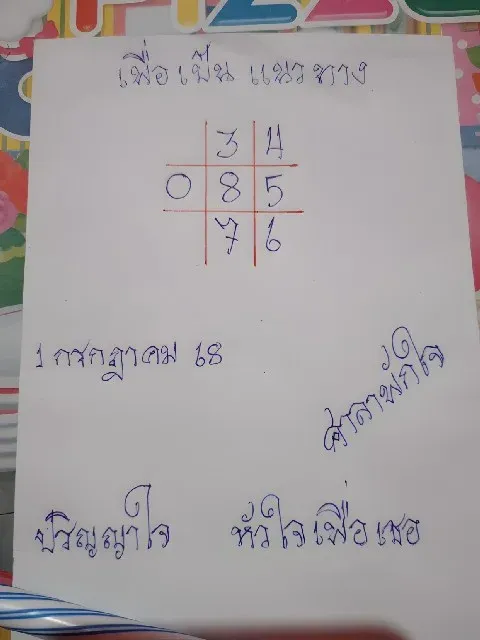 เพื่อเป็นแนวทาง
3 4
0 8 5
7 6
1 กรกฎาคม 68
ศาลาพักใจ
ปริญญาใจ หัวใจเพื่อเธอ